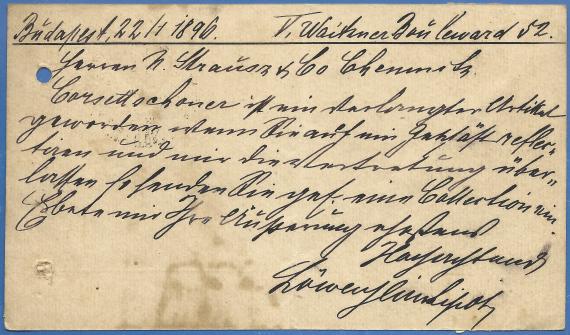 Budapest, 22/1 1896. V. Waitzner Boulevard 52.
Herren N. Strausz & Co Chemnitz.
Corsettschoner ist ein verlangter Artikel
geworden wenn Sie auf ein Geschäft reflec-
tiren und mir die Vertretung über-
lassen so senden Sie gef. eine Collection ein.
Erbete mir Ihre Äusserung ehestens
Hochachtend